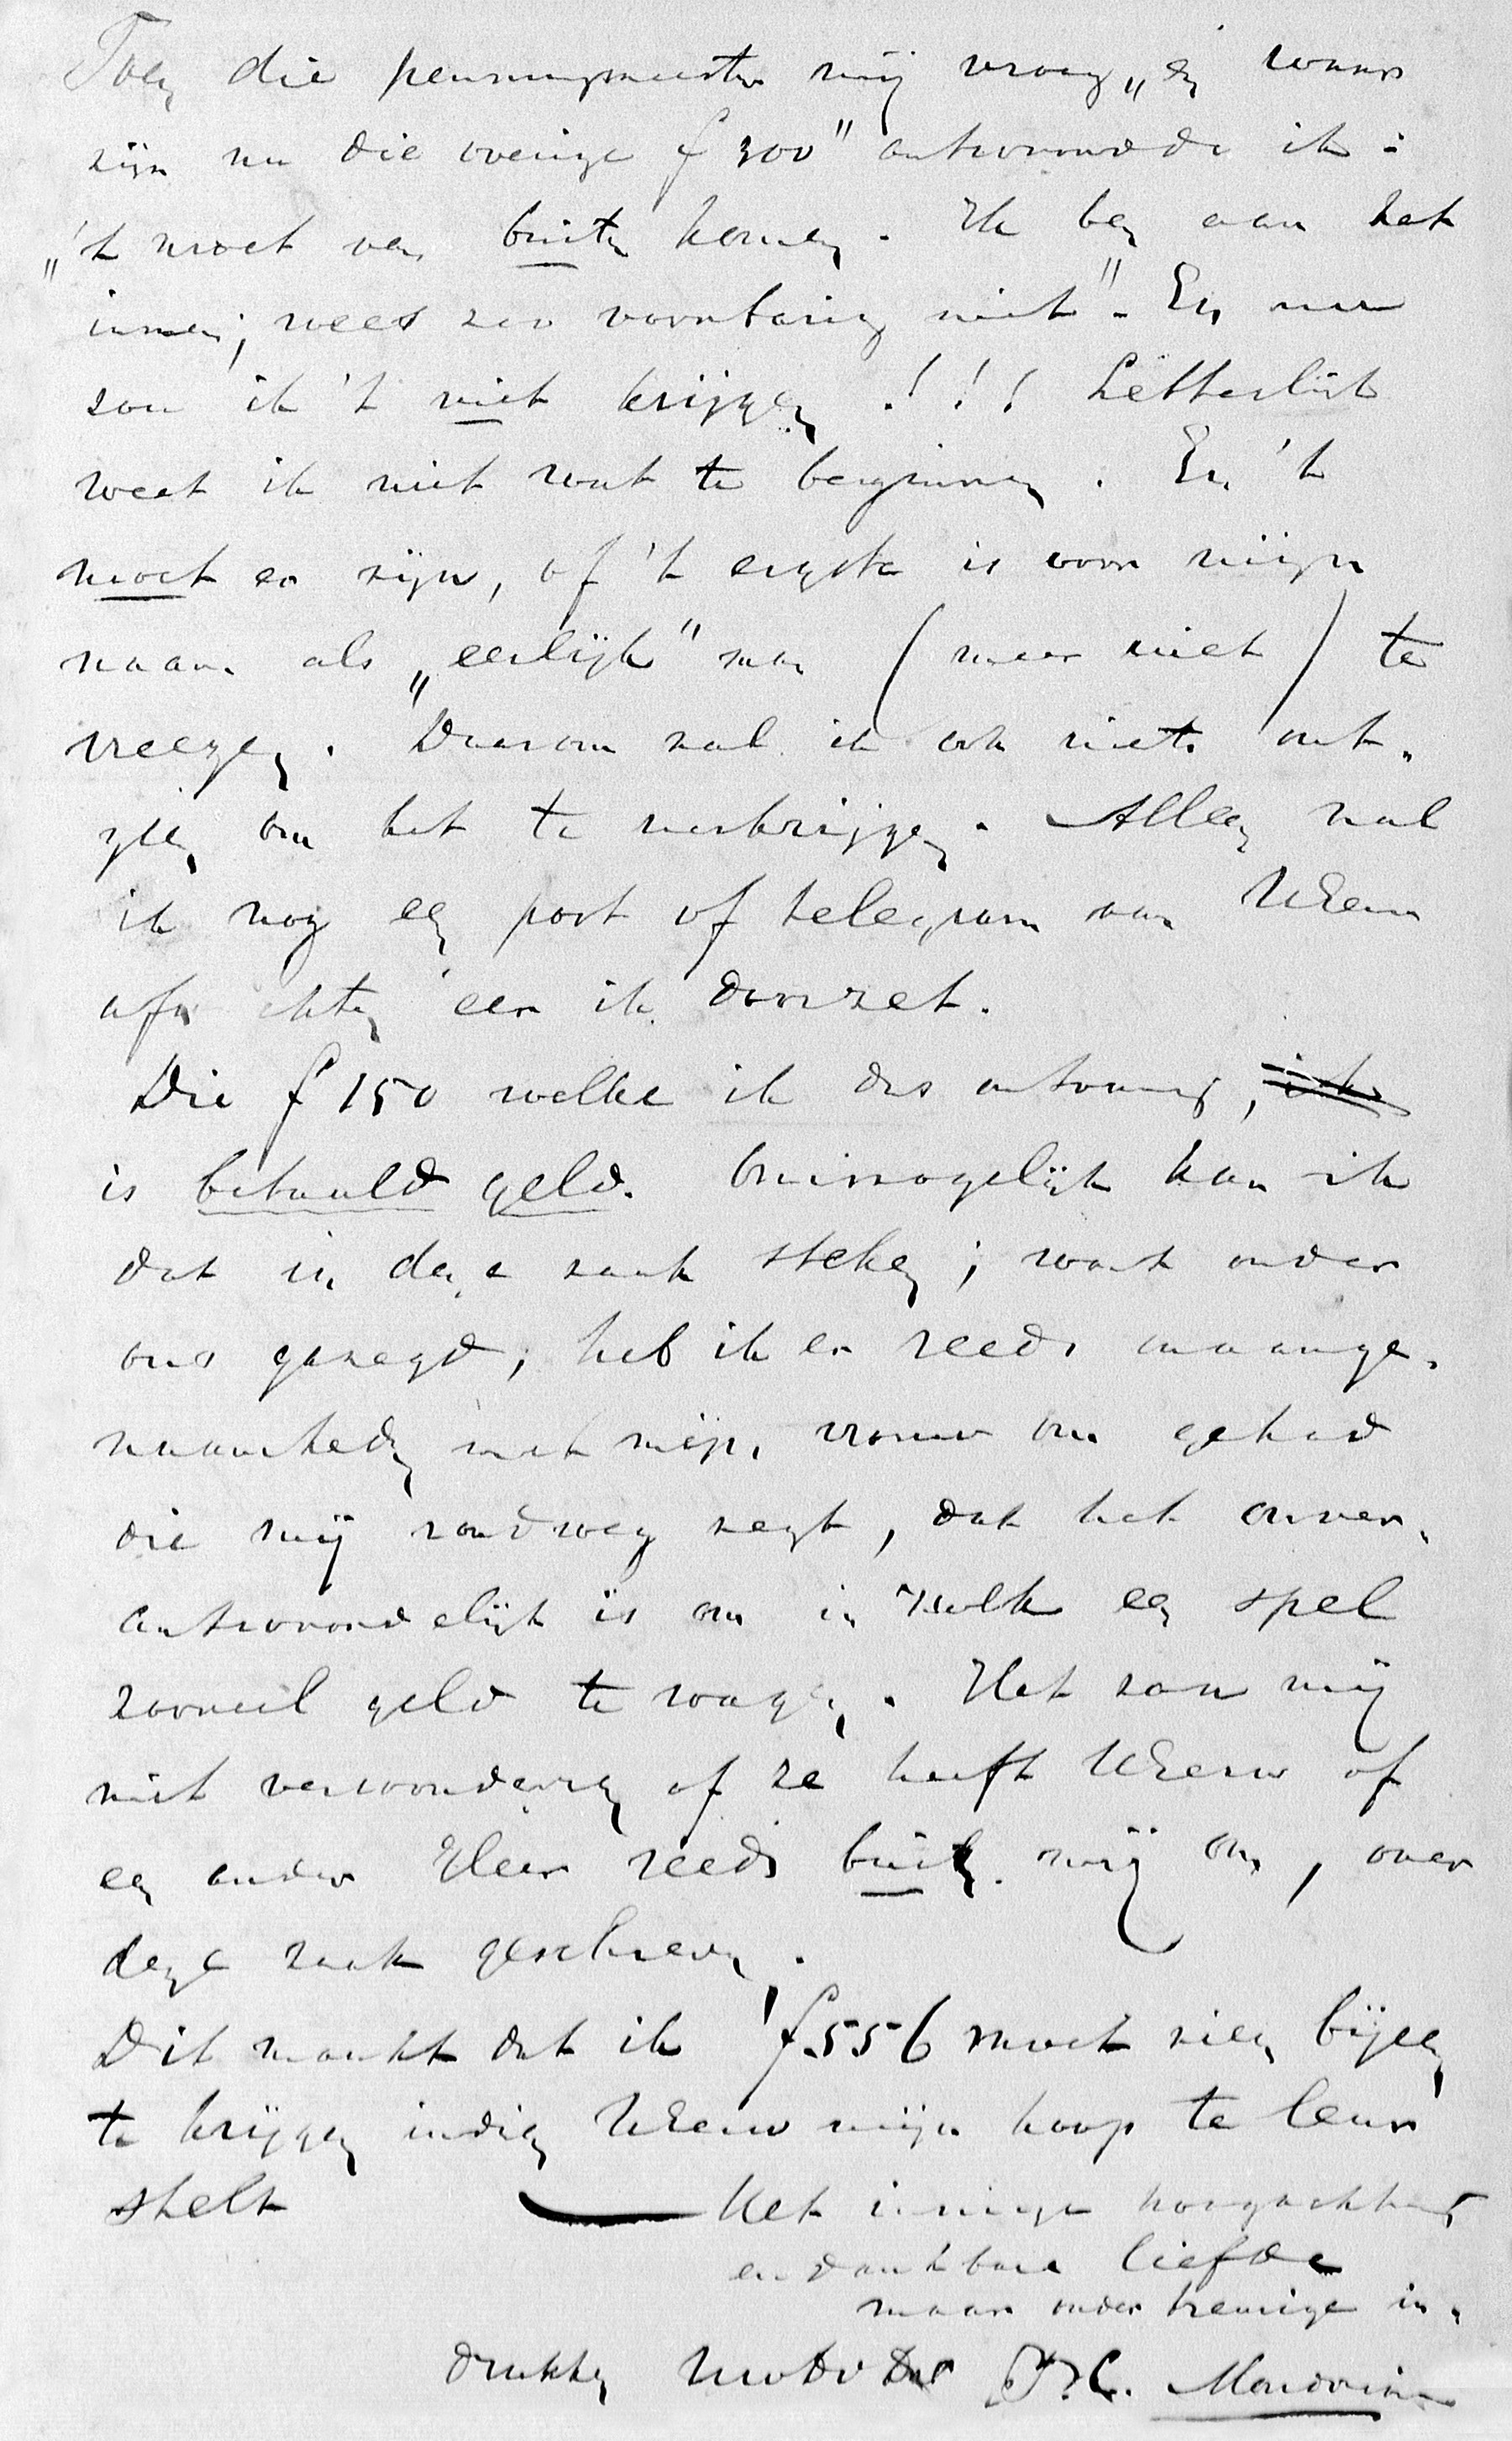 Toen die penningmeester mij vroeg „en waar
zijn nu die overige f 300" antwoordde ik:
„'t moet van buiten komen. Ik ben aan het
innen; wees zoo voorbarig niet". En nu
zou ik 't niet krijgen !!! Letterlijk
weet ik niet wat te beginnen. En 't
moet er zijn, of 't ergste is voor mijn
naam als „eerlijk" man (meer niet) te
vreezen. Daarom zal ik ook niets ont-
zien om het te verkrijgen. Alleen zal
ik nog een post of telegram van UEerw
afwachten eer ik doorzet.
Die f 150 welke ik dus ontvang,
is betaald geld. Onmogelijk kan ik
dat in deze zaak steken; want onder
ons gezegd, heb ik er reeds onaange-
naamheden met mijn vrouw om gehad
die mij rondweg zegt, dat het onver-
antwoordelijk is om in zulk een spel
zooveel geld te wagen. Het zou mij
niet verwonderen of ze heeft UEerw of
een ander Heer reeds buiten mij om, over
deze zaak geschreven.
Dit maakt dat ik f 556 moet zien bijeen
te krijgen indien UEerw mijn hoop te leur
stelt Met innige hoogachting
en dankbare liefde
maar onder treurige in-
drukken UwDvDnr C. Mondriaan